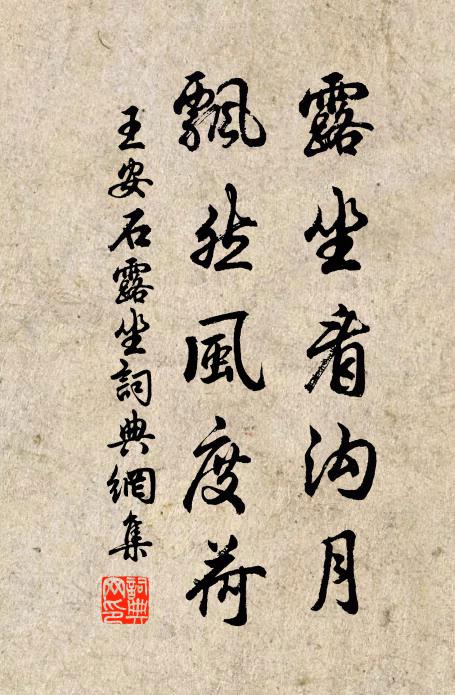 露坐看沟月
飄然風度荷
王安石露坐詞典網集
詞典網印